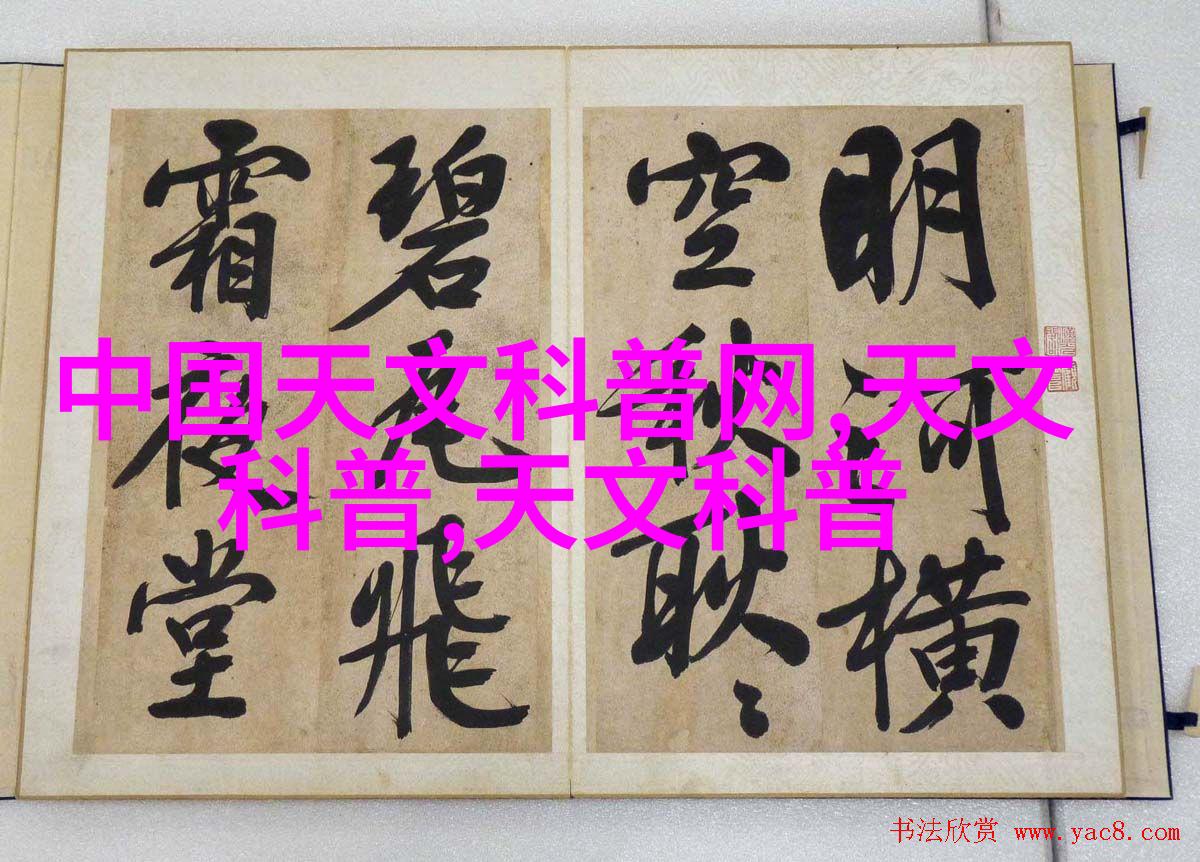 明河橫
空秋耿〻
碧瓦飛
霜夜堂
中国天文科普网,天文
科普,天文科普
书法欣赏 www.yac8.com